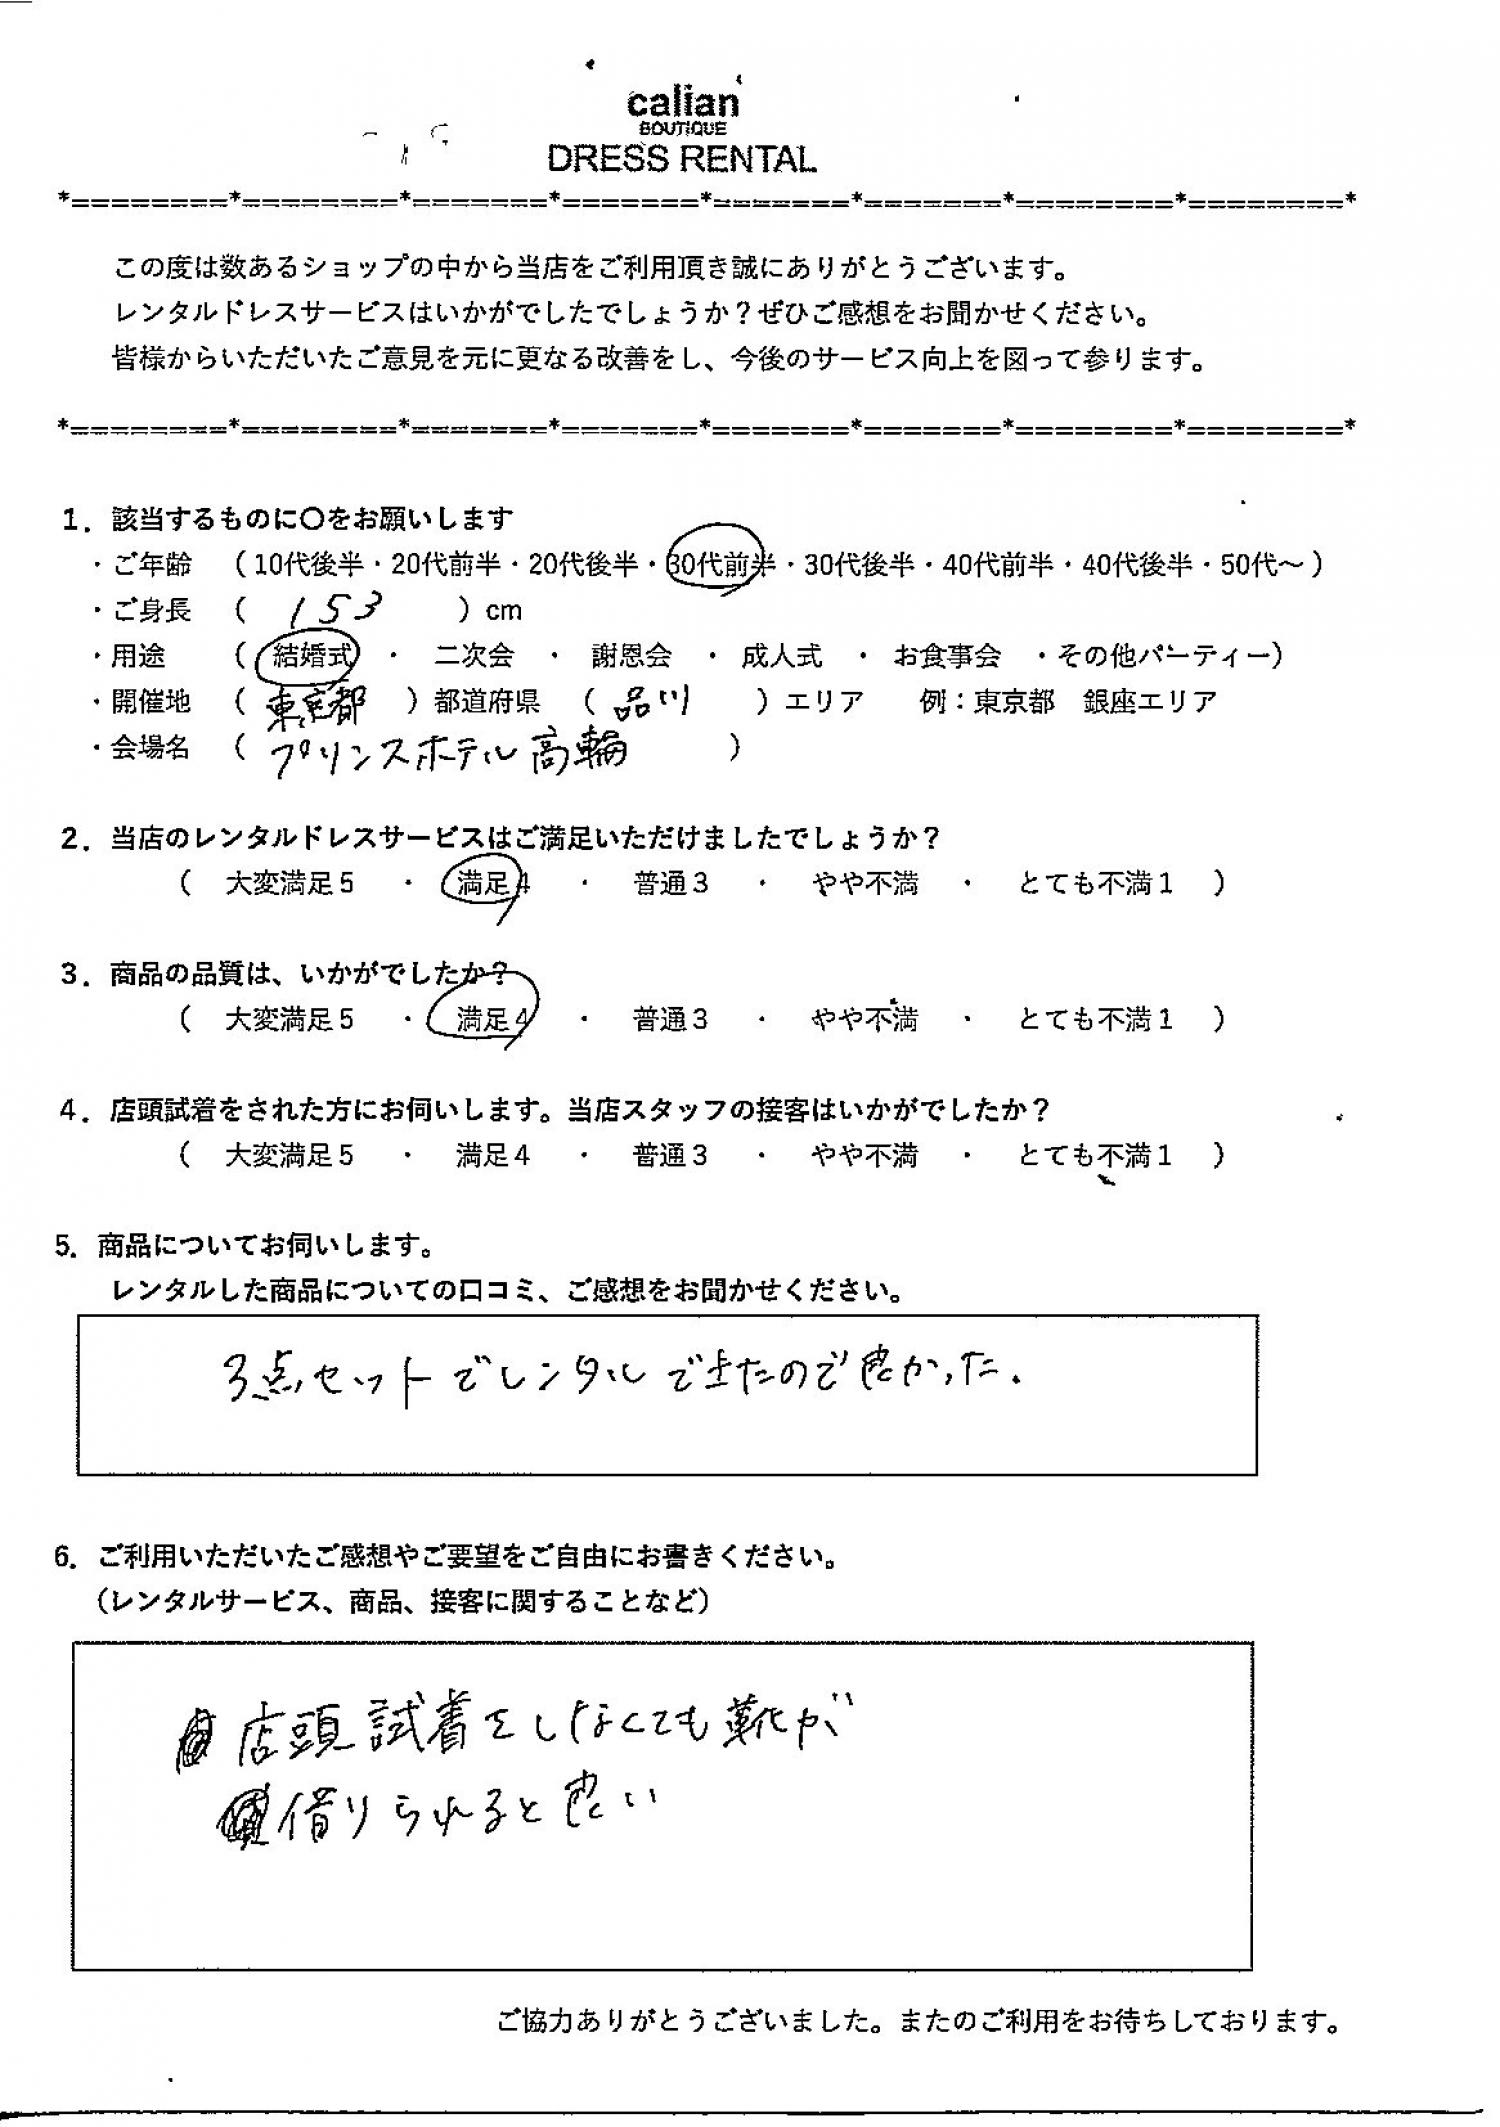 calian
BOUTIQUE
DRESS RENTAL
*========*========*=======*=======*=======*=======*========*========*
この度は数あるショップの中から当店をご利用頂き誠にありがとうございます。
レンタルドレスサービスはいかがでしたでしょうか？ぜひご感想をお聞かせください。
皆様からいただいたご意見を元に更なる改善をし、今後のサービス向上を図って参ります。
*========*========*=======*=======*=======*=======*========*========*
1．該当するものに〇をお願いします
・ご年齢　（10代後半・20代前半・20代後半・30代前半・30代後半・40代前半・40代後半・50代～）
・ご身長　（　153　）cm
・用途　（　結婚式　・　二次会　・　謝恩会　・　成人式　・　お食事会　・その他パーティー）
・開催地　（　東京都　）都道府県　（　品川　）エリア　例：東京都　銀座エリア
・会場名　（　プリンスホテル高輪　）
2．当店のレンタルドレスサービスはご満足いただけましたでしょうか？
（　大変満足5　・　満足4　・　普通3　・　やや不満　・　とても不満1　）
3．商品の品質は、いかがでしたか？
（　大変満足5　・　満足4　・　普通3　・　やや不満　・　とても不満1　）
4．店頭試着をされた方にお伺いします。当店スタッフの接客はいかがでしたか？
（　大変満足5　・　満足4　・　普通3　・　やや不満　・　とても不満1　）
5．商品についてお伺いします。
レンタルした商品についての口コミ、ご感想をお聞かせください。
3点セットでレンタルできたので良かった．
6．ご利用いただいたご感想やご要望をご自由にお書きください。
（レンタルサービス、商品、接客に関することなど）
店頭試着をしなくても靴が
借りられると良い
ご協力ありがとうございました。またのご利用をお待ちしております。